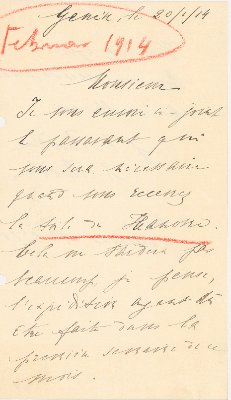 Genève, le 20/1/14
Februar 1914
Monsieur
Je vous envoie ci-joint
le passavant qui
vous sera nécessaire
quand vous recevrez
la toile de Hanovre
Cela ne tardera pas
beaucoup je pense,
l'expédition ayant dû
être faite dans la
première semaine de ce
mois.